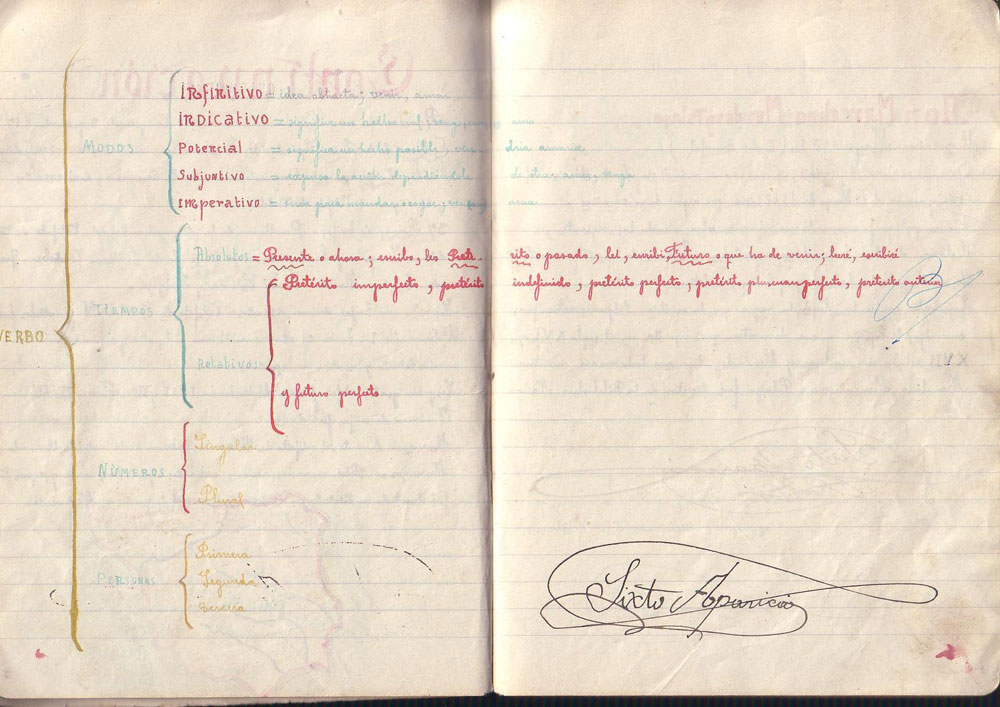 VERBO
MODOS
Infinitivo = idea abstracta; venir, amar
Indicativo = significa un hecho real; vengo, amo
Potencial = significa un hecho posible, vendría amaria
Subjuntivo = expresa la acción dependiéndola de otra; ame, venga
Imperativo = sirve para mandar, o rogar, ven, ama
TIEMPOS
Absolutos = Presente o ahora; escribo, leo Preterito o pasado, leí, escribí, Futuro o que ha de venir; leeré, escribiré
Relativos
Pretérito imperfecto, pretérito indefinido, pretérito perfecto, pretérito pluscuamperfecto, preterito anterior
y futuro perfecto
NÚMEROS
Singular
Plural
PERSONAS
Primera
Segunda
tercera
Sixto Aparicio